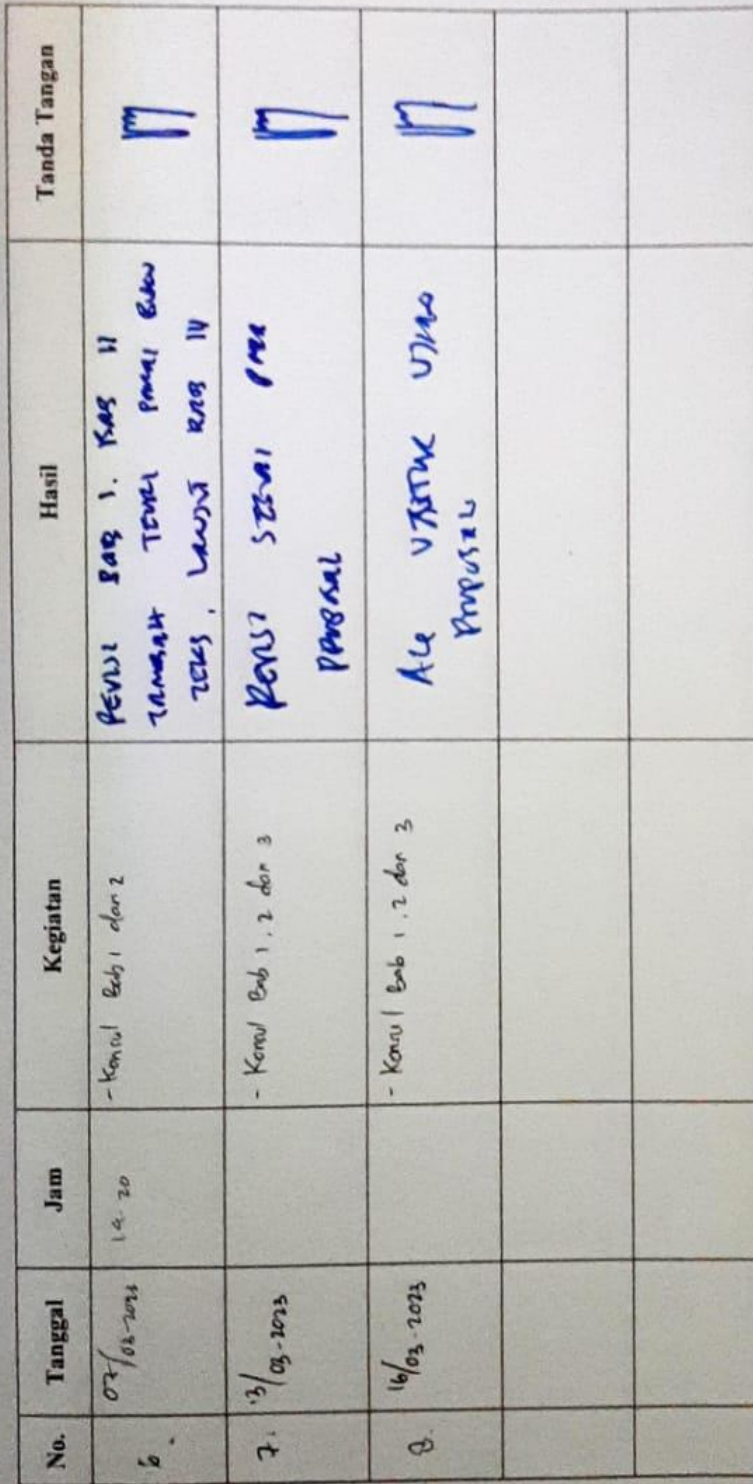 No. Tanggal Jam Kegiatan Hasil Tanda Tangan
6. 07/03-2023 14.20 - Konsul Bab 1 dan 2
REVISI BAB I. BAB II
TAMBAH TEORI PAKAI BUKU
TEKS, LANJUT BAB III
7. 13/03-2023 - Konsul Bab 1, 2 dan 3
REVISI SESUAI
PROPOSAL
8. 16/03-2023 - Konsul Bab 1, 2 dan 3
Acc UNTUK UJIAN
PROPOSAL